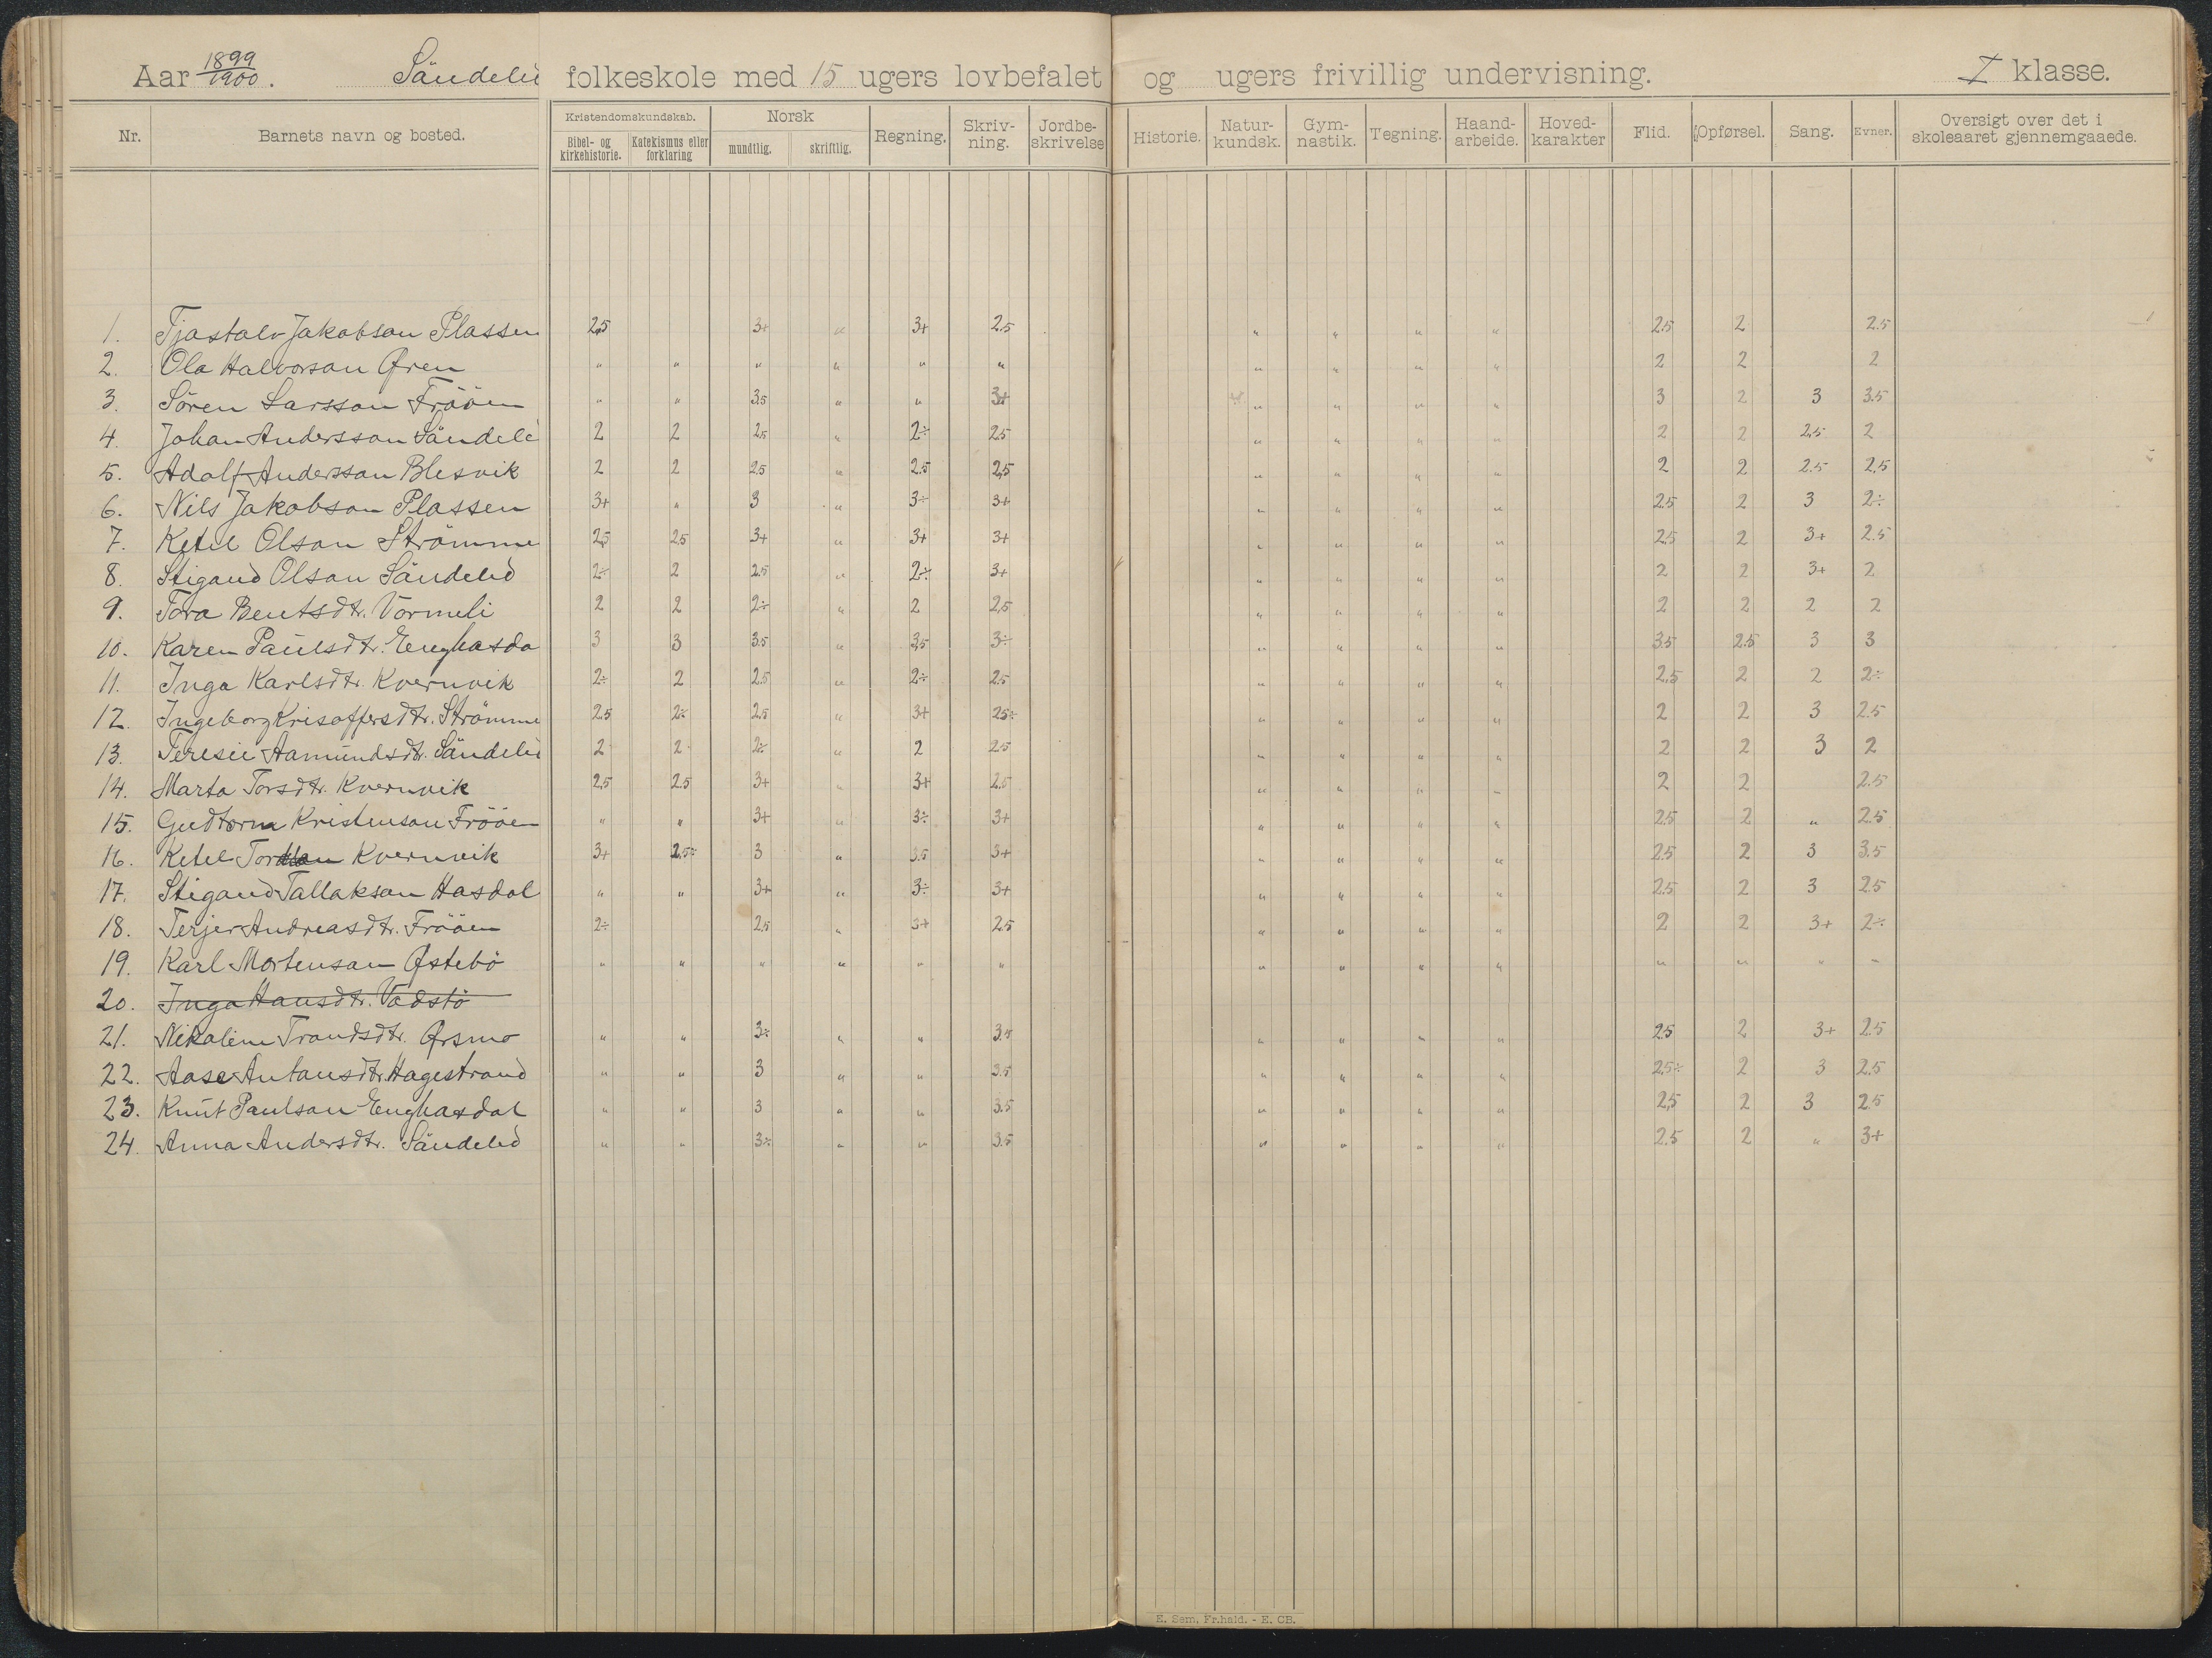 Aar 1899/1900. Söndeled folkeskole med 15 ugers lovbefalet og ugers frivillig undervisning. I klasse.
Nr. Barnets navn og bosted. Kristendomskundskab. Bibel- og kirkehistorie. Katekismus eller forklaring Norsk mundtlig. skriftlig. Regning. Skriv-ning. Jordbe-skrivelse Historie. Natur-kundsk. Gym-nastik. Tegning. Haand-arbeide. Hoved-karakter Flid. Opførsel. Sang. Evner. Oversigt over det i skoleaaret gjennemgaaede.
1. Tjostolv Jakobson Plassen 2,5 3+ " 3+ 2.5 " " " " 2.5 2 2.5
2. Ola Halvorson Øren " " " " " " " " " " 2 2 2
3. Sören Larsson Frööen " " 3.5 " " 3+ " " " " 3 2 3 3.5
4. Johan Andersson Söndele 2 2 2.5 " 2÷ 2.5 " " " " 2 2 2.5 2
5. Adolf Andersson Blesvik 2 2 2.5 " 2.5 2,5 " " " " 2 2 2.5 2,5
6. Nils Jakobson Plassen 3+ " 3 " 3÷ 3+ " " " " 2.5 2 3 2÷
7. Ketil Olson Strömme 2,5 2.5 3+ " 3+ 3+ " " " " 2.5 2 3+ 2.5
8. Stigand Olson Söndeled 2÷ 2 2.5 " 2÷ 3+ " " " " 2 2 3+ 2
9. Tora Bentsdtr. Vormeli 2 2 2÷ " 2 2,5 " " " " 2 2 2 2
10. Karen Paulsdtr. Enghasda 3 3 3.5 " 3,5 3÷ " " " " 3.5 2.5 3 3
11. Inga Karlsdtr. Kvernvik 2÷ 2 2.5 " 2÷ 2.5 " " " " 2,5 2 2 2÷
12. Ingeborg Krisoffersdtr. Strömme 2.5 2÷ 2,5 " 3+ 25÷ " " " " 2 2 3 2.5
13. Teresie Aamundsdtr. Söndeled 2 2 2÷ " 2 2.5 " " " " 2 2 3 2
14. Marta Torsdtr. Kvernvik 2,5 2.5 3+ " 3+ 2.5 " " " " 2 2 2.5
15. Gudtorm Kristenson Frööen " " 3+ " 3÷ 3+ " " " " 2.5 2 " 2.5
16. Ketel Kvernvik 3+ 2,5÷ 3 " 3.5 3+ " " " " 2.5 2 3 3.5
17. Stigand Tallakson Hasdal " " 3+ " 3÷ 3+ " " " " 2.5 2 3 2.5
18. Terjer Andreasdtr. Frööen 2÷ 2.5 " 3+ 2.5 " " " " 2 2 3+ 2÷
19. Karl Mortenson Østebö " " " " " " " " " " " " " "
20. Inga Hansdtr. Vadstö
21. Nikoline Trondsdtr. Ørsmo " " 3÷ " " 3.5 " " " " 2.5 2 3+ 2.5
22. Aase Antonsdtr. Hagestrand " " 3 " " 3.5 " " " " 2,5÷ 2 3 2.5
23. Knut Paulson Enghasdal " " 3 " " 3.5 " " " " 2,5 2 3 2.5
24. Anna Andersdtr. Söndeled " " 3÷ " " 3.5 " " " " 2.5 2 " 3+
E. Sem. Fr.hald. - E. CB.